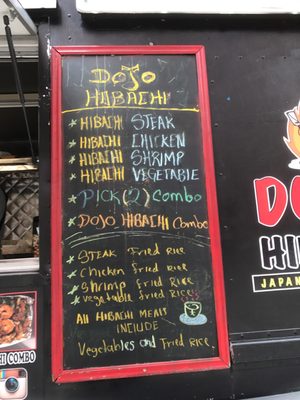 DOJO
HIBACHI
* HIBACHI STEAK
* HIBACHI CHICKEN
* HIBACHI SHRIMP
* HIBACHI VEGETABLE
* PICK (2) Combo
* DOJO HIBACHI Combo
* STEAK Fried Rice
* Chicken fried Rice
* Shrimp fried Rice
* Vegetable fried Rice
All HIBACHI MEALS
INCLUDE
Vegetables and Fried Rice
DO
HI
JAPAN
HI COMBO